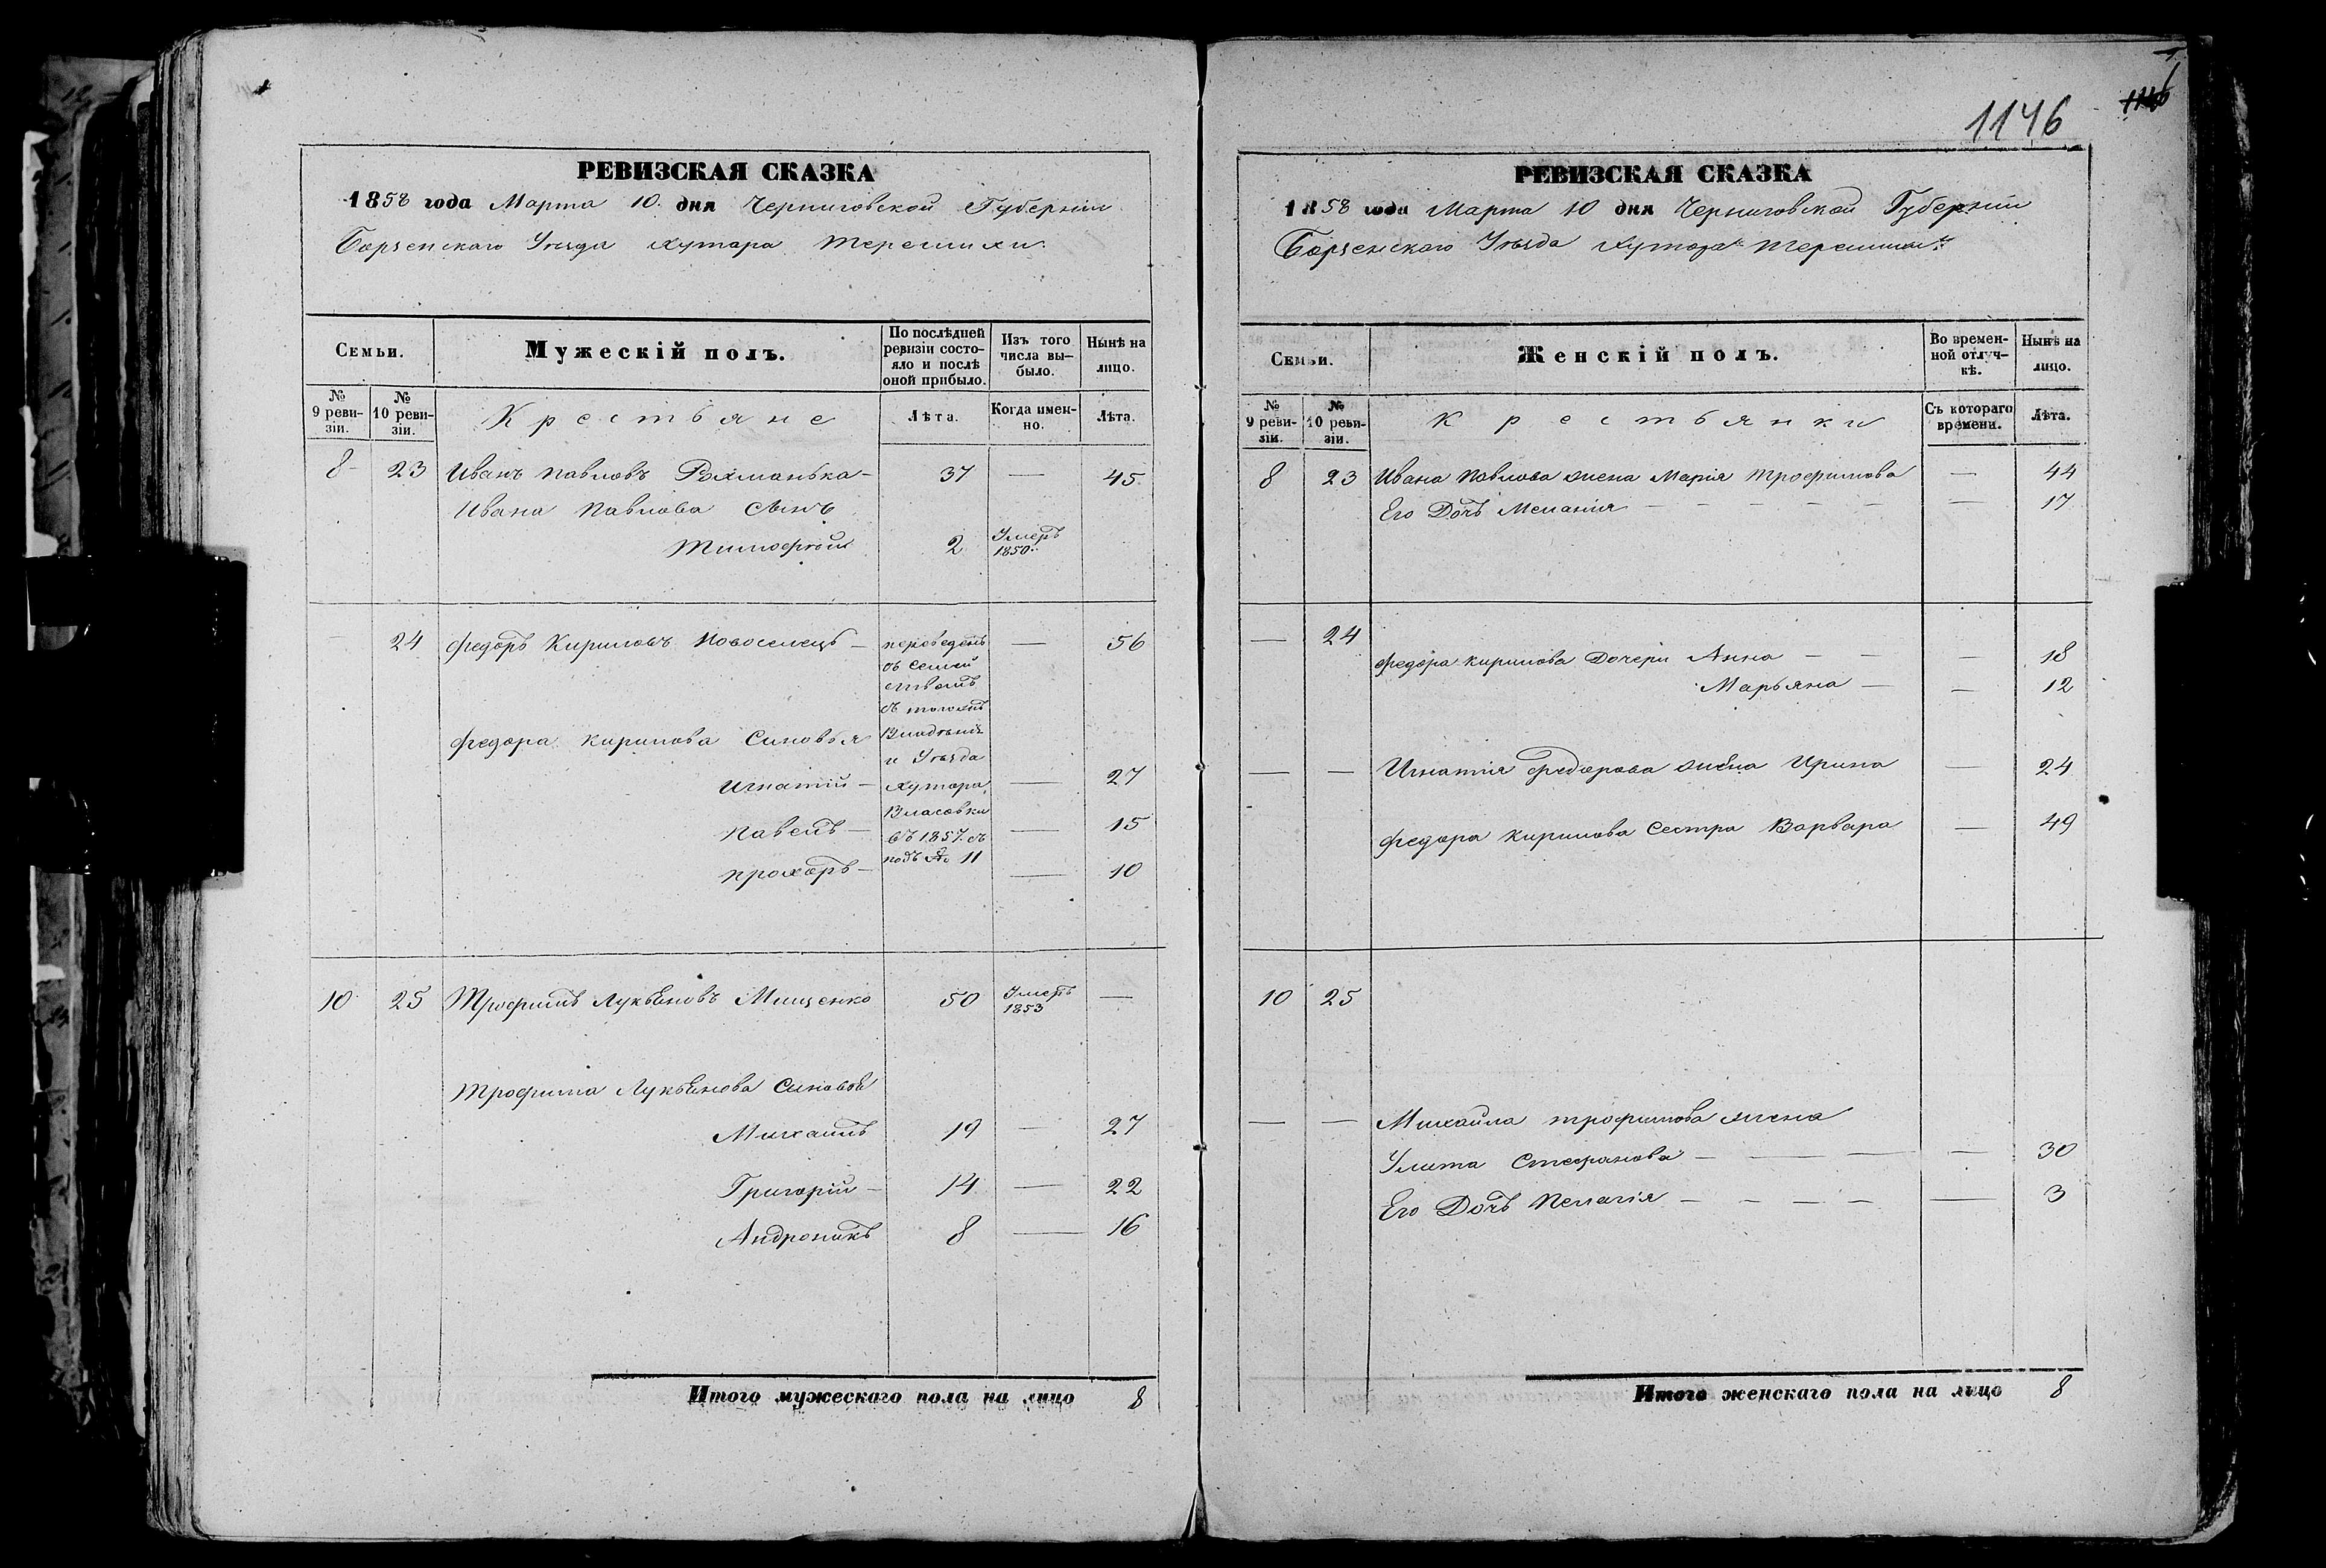 РЕВИЗСКАЯ СКАЗКА
1858 года Марта 10 дня Черниговской Губерніи
Борзенскаго Уѣзда Хутора Терешихи
Семьи.
Мужескій полъ.
По послѣдней ревизіи состо-
яло и послѣ оной прибыло.
Изъ того числа вы-
было.
Нынѣ на лицо.
№ 9 реви-
зіи.
№ 10 реви-
зіи.
Крестьяне
Лѣта.
Когда имен-
но.
Лѣта.
8 23 Иванъ Павловъ Рохманька 37 — 45
Ивана Павлова Сынъ
Тимофѣй 2 Умеръ 1850
24 Федоръ Кириловъ Новоселецъ — переведенъ — 56
съ семей
ствомъ
съ тогожъ
Федора Кирилова Синовья Владѣнія
и Уѣзда
Игнатій — Хутора — 27
Власовки
Павелъ — съ 1857 съ — 15
подъ № 11
Прохоръ — — 10
10 25 Трофимъ Лукьяновъ Мищенко 50 Умеръ 1853 —
Трофима Лукьянова Синовья
Михаилъ 19 — 27
Григорій — 14 — 22
Андроникъ 8 — 16
Итого мужескаго пола на лицо 8
1146
РЕВИЗСКАЯ СКАЗКА
1858 года Марта 10 дня Черниговской Губерніи
Борзенскаго Уѣзда Хутора Терешихи
Семьи.
Женскій полъ.
Во времен-
ной отлуч-
кѣ.
Нынѣ на лицо.
№ 9 реви-
зіи.
№ 10 реви-
зіи.
Крестьянки
Съ котораго времени.
Лѣта.
8 23 Ивана Павлова жена Марія Трофимова — 44
Его Дочь Меланія — — 17
— 24
Федора Кирилова Дочери Анна — — — 18
Марьяна — — 12
— — Игнатія Федорова жена Ирина — 24
Федора Кирилова Сестра Варвара — 49
10 25
— — Михайла Трофимова жена
Улита Стефанова — — — — 30
Его Дочь Пелагія — — — — — 3
Итого женскаго пола на лицо 8